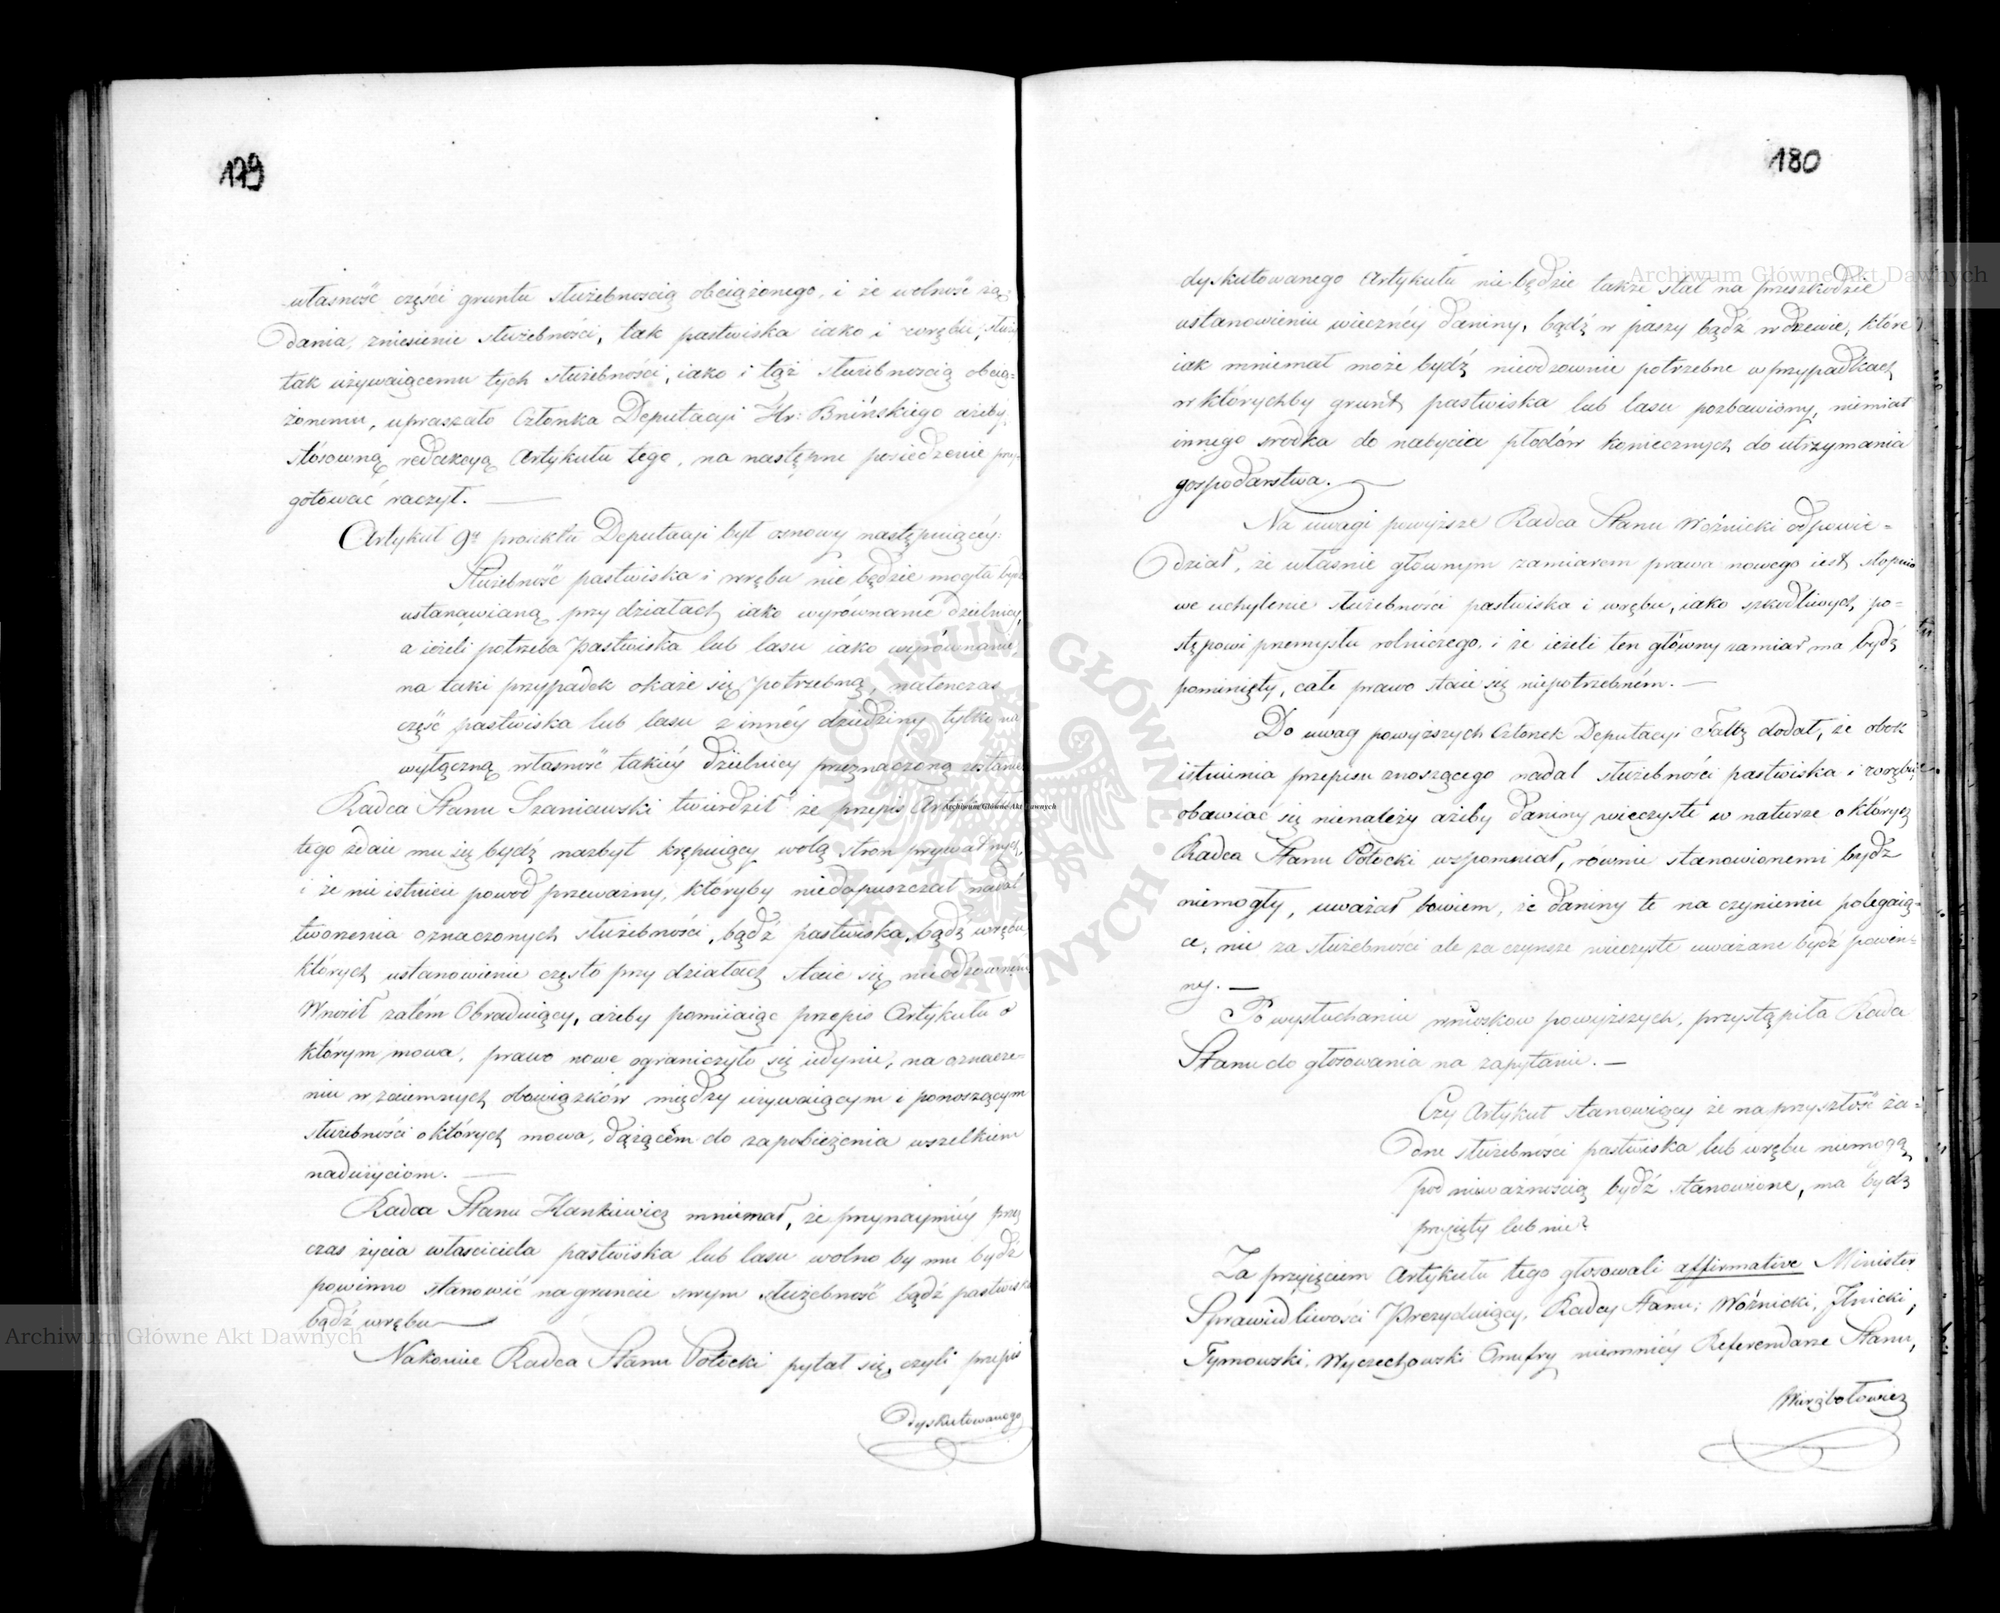 179
własność części gruntu służebnością obciążonego, i że wolność żą-
dania, zniesienie służebności, tak pastwiska iako i wrębu, służy
tak używaiącemu tych służebności, iako i tąż służebnością obcią-
żonemu, upraszało Członka Deputacyi Hr: Bnińskiego ażeby
stósowną redakcyą Artykułu tego, na następne posiedzenie przy-
gotować raczył. —
Artykuł 9ty proiektu Deputacyi był osnowy następuiącéy:
Służebność pastwiska i wrębu nie będzie mogła bydź
ustanawianą przy działach iako wyrównanie dzielnicy,
a ieżeli potrzeba pastwiska lub lasu iako wyrównanie,
na taki przypadek okaże się potrzebną, natenczas
część pastwiska lub lasu z innéy dziedziny tylko na
wyłączną własność takiéy dzielnicy przeznaczoną zostanie
Radca Stanu Szaniawski twierdził że przepis Artykułu
tego zdaie mu się bydź nazbyt krępuiący wolą stron prywatnych,
i że nie istnieie powód przeważny, któryby niedopuszczał nadal
tworzenia oznaczonych służebności, bądź pastwiska, bądź wrębu
których ustanowienie często przy działach staie się nieodzowném
Wnosił zatém Obraduiący, ażeby pomiiaiąc przepis Artykułu o
którym mowa, prawo nowe ograniczyło się iedynie, na oznacze-
niu wzaiemnych obowiązków między używaiącym i ponoszącym
służebności o których mowa, dążącém do zapobieżenia wszelkiem
nadużyciom. —
Radca Stanu Hankiewicz mniemał, że przynaymniéy przez
czas życia właściciela pastwiska lub lasu wolno by mu bydź
powinno stanowić na gruncie swym służebność bądź pastwiska
bądź wrębu —
Nakoniec Radca Stanu Potocki pytał się, czyli przepis
Dyskutowanego
180
dyskutowanego Artykułu nie będzie także stał na przeszkodzie
ustanowieniu wiecznéy daniny, bądź w paszy bądź w drzewie, które
iak mniemał może bydź nieodzownie potrzebne w przypadkach
w którychby grunt pastwiska lub lasu pozbawiony, niemiał
innego srodka do nabycia płodów koniecznych do utrzymania
gospodarstwa. —
Na uwagi powyższe Radca Stanu Woźnicki odpowie-
dział, że własnie głównym zamiarem prawa nowego iest stopnio
we uchylenie służebności pastwiska i wrębu, iako szkodliwych po-
stępowi przemysłu rolniczego, i że ieżeli ten główny zamiar ma bydź
pominięty, całe prawo staie się niepotrzebném. —
Do uwag powyższych Członek Deputacyi Faltz dodał, że obok
istnienia przepisu znoszącego nadal służebności pastwiska i wrębu,
obawiać się nienależy ażeby daniny wieczyste w naturze o których
Radca Stanu Potocki wspomniał, równie stanowionemi bydź
niemogły, uważał bowiem, że daniny te na czynieniu polegaią-
ce, nie za służebności ale za czynsze wieczyste uważane bydź powin-
ny. —
Po wysłuchaniu wniosków powyższych, przystąpiła Rada
Stanu do głosowania na zapytanie. —
Czy Artykuł stanowiący że na przyszłość ża-
dne służebności pastwiska lub wrębu niemogą
pod nieważnością bydź stanowione, ma bydź
przyięty lub nie?
Za przyięciem Artykułu tego głosowali affirmative Minister
Sprawiedliwości Prezyduiący, Radcy Stanu; Woźnicki, Ilnicki,
Tymowski, Wyczechowski Onufry niemniéy Referendarze Stanu,
Wierzbołowicz
Archiwum Główne Akt Dawnych
Archiwum Główne Akt Dawnych
Archiwum Główne Akt Dawnych
ARCHIWUM GŁÓWNE AKT DAWNYCH